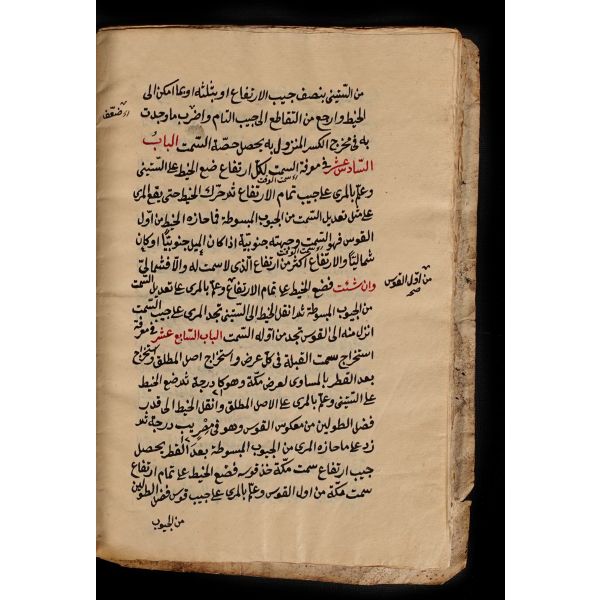 من الستيني بنصف جيب الارتفاع او بثلثه او بما امكن الى
الخيط وارجع من التقاطع الى جيب التمام واضرب ما وجدت
به في مخرج الكسر المنزول به يحصل حصة السمت الباب
السادس عشر في معرفة السمت لكل ارتفاع ضع الخيط على الستيني
وعلم بالمرى على جيب تمام الارتفاع ثم حرك الخيط حتى يقع المرى
على مثل تعديل السمت من الجيوب المبسوطة فما حازه الخيط من اول
القوس فهو السمت وجهته جنوبية اذا كان الميل جنوبيا او كان
شماليا والارتفاع اكثر من ارتفاع الذى لا سمت له والا فشمالي
وان شئت فضع الخيط على تمام الارتفاع وعلم بالمرى على تعديل السمت
من الجيوب المبسوطة ثم انقل الخيط الى الستيني تجد المرى على جيب السمت
انزل منه الى القوس تجد من اوله السمت الباب السابع عشر في معرفة
استخراج سمت القبلة في كل عرض واستخراج اصل المطلق واستخراج
بعد القطر بالمساوى لعرض مكة وهو كا درجة ثم ضع الخيط
على الستيني وعلم بالمرى على الاصل المطلق وانقل الخيط الى قدر
فضل الطولين من معكوس القوس وهو في درجة ثم
زد على ما حازه المرى من الجيوب المبسوطة بعد القطر يحصل
جيب ارتفاع سمت مكة خذ قوسه فضع الخيط على تمام ارتفاع
سمت مكة من اول القوس وعلم بالمرى على جيب قوس فضل الطولين
من الجيوب
من اول القوس
صح